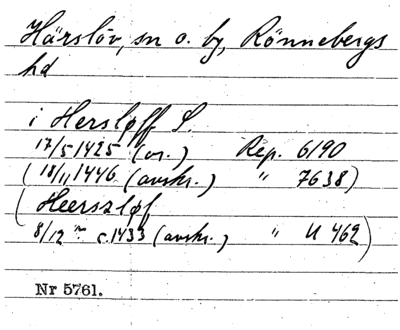 Härslöv, sn o. by, Rönnebergs
hd
i Hersløff S.
17/5 1425 (or.) Rep. 6190
(18/11 1446 (avskr.) " 7638)
(Heerszløf
8/12 c. 1433 (avskr.) " U 462)
Nr 5761.